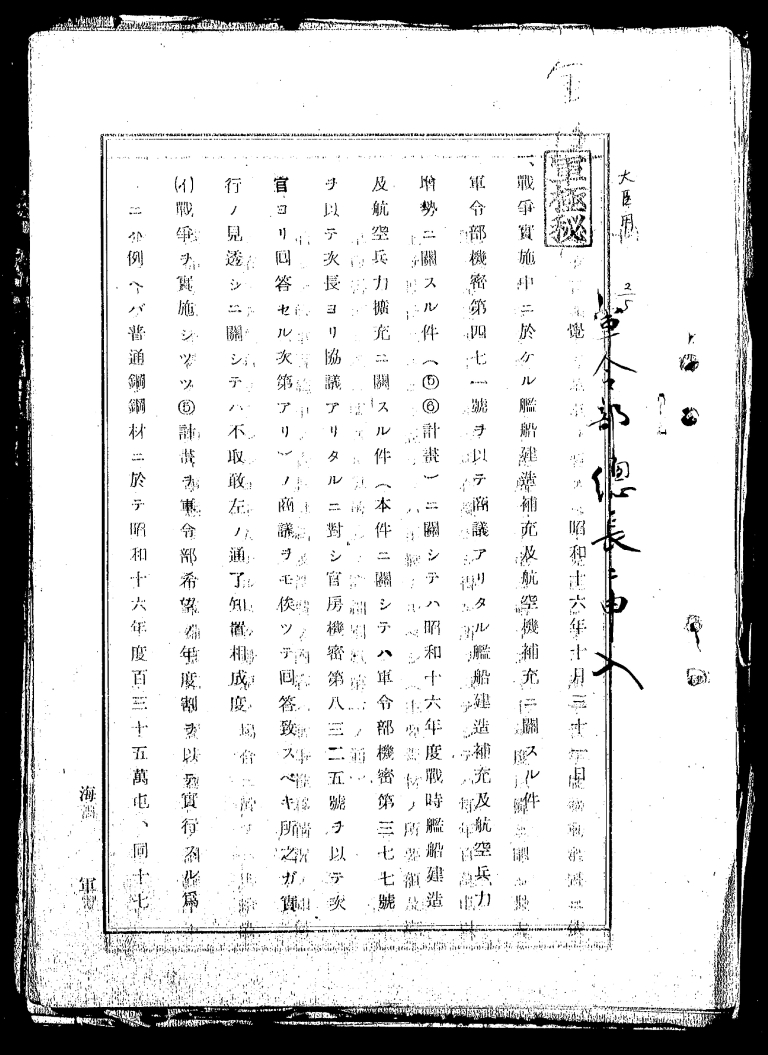 大臣用
2/5
軍令部總長ニ申入
軍極秘
覺 昭和十六年十月三十一日
、戰爭實施中ニ於ケル艦船建造補充及航空機補充ニ關スル件
軍令部機密第四七一號ヲ以テ商議アリタル艦船建造補充及航空兵力
增勢ニ關スル件(⑤⑥計畫)ニ關シテハ昭和十六年度戰時艦船建造
及航空兵力擴充ニ關スル件(本件ニ關シテハ軍令部機密第三七七號
ヲ以テ次長ヨリ協議アリタルニ對シ官房機密第八三二五號ヲ以テ次
官ヨリ回答セル次第アリ)ノ商議ヲモ俟ツテ回答致スベキ所之ガ實
行ノ見透シニ關シテハ不取敢左ノ通了知置相成度
(イ)戰爭ヲ實施シツツ⑤計畫ヲ軍令部希望ノ年度割ヲ以テ實行スル爲
ニハ例ヘバ普通鋼鋼材ニ於テ昭和十六年度百三十五萬屯、同十七
海軍